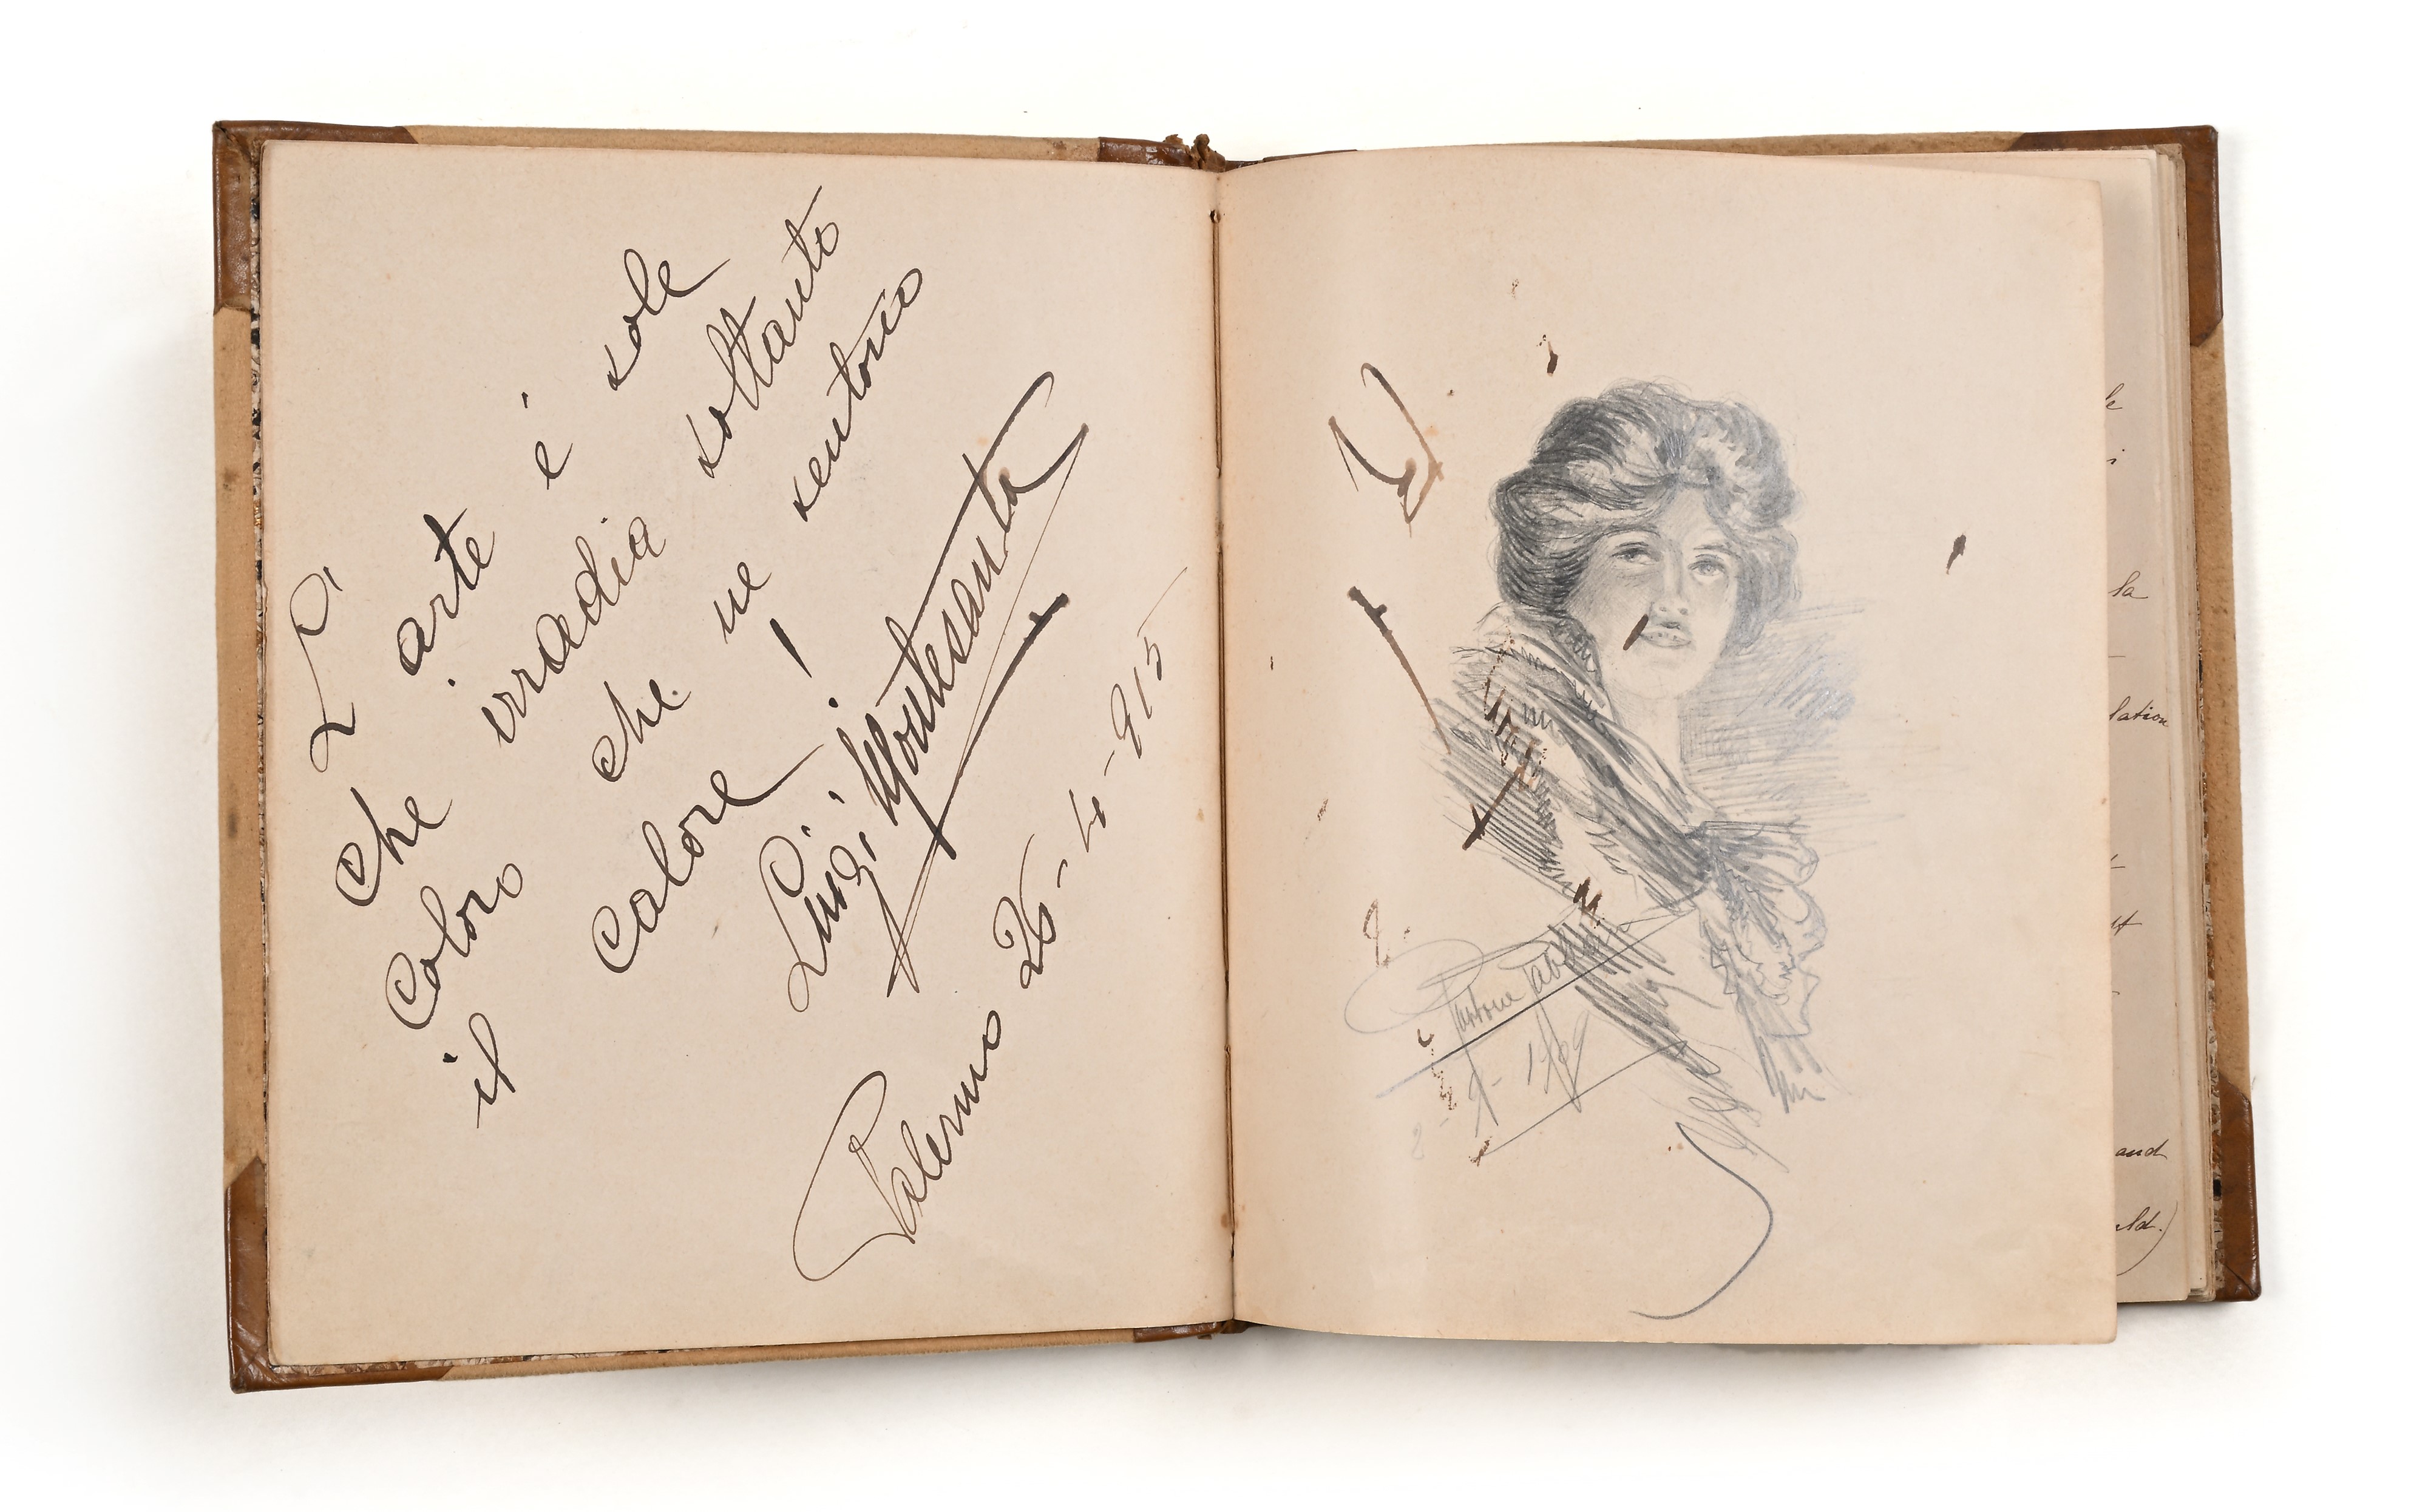 L'arte è sole
che irradia soltanto
coloro che ne sentono
il calore!
Luigi Montesanto
Palermo 26-4-915
le
i
la
lation
and
uld.)